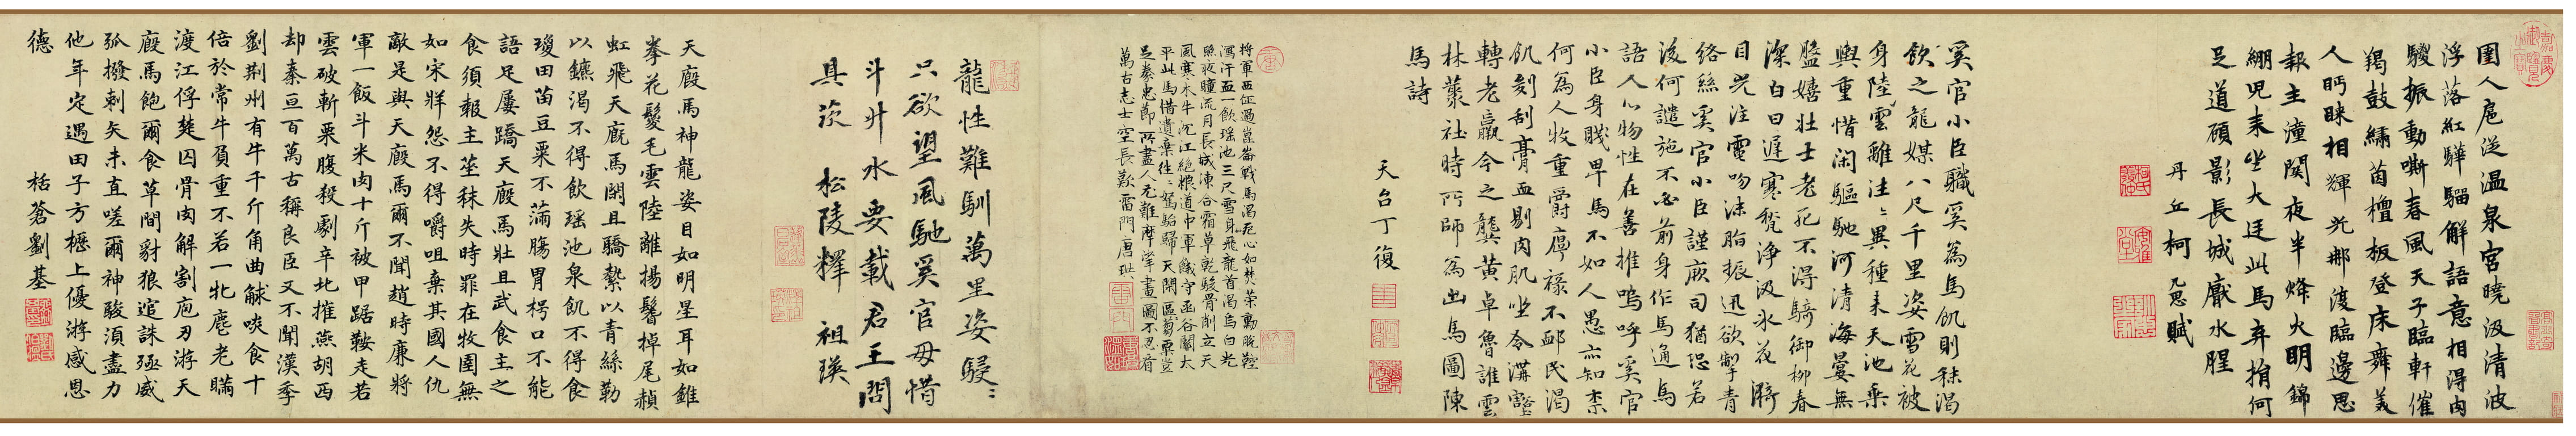 圉人扈從温泉宮曉汲清波
浮落紅驊騮解語意相得肉
騣振動嘶春風天子臨軒催
羯鼓繡茵檀板登床舞美
人眄睞相輝光那臨邊思
報主潼関夜半烽火明錦
繃児来坐大廷此馬弃捐何
足道顧影長城厭水腥
丹丘柯九思賦
奚官小臣職奚為馬飢則秣渴
飲之龍媒八尺千里姿雪花被
身陸雲離注〻異種来天池乗
輿重惜閑驅馳河清海晏無
盤嬉壮士老死不得騎御柳春
深白日遅寒甃浄汲氷花漪
目光注電吻沫脂振迅欲掣青
絡絲奚官小臣謹厥司猶恐若
後何譴施不必前身作馬通馬
語人心物性在善推嗚呼奚官
小臣身賤卑馬不如人愚亦知柰
何為人牧重爵廪禄不䘏民渴
飢剜刮膏血剔肉肌坐令溝壑
轉老羸今之龔黄卓魯誰雲
林藂社時所師為出馬圖陳
馬詩
天台丁復
將軍西征過崑崙戰馬渴死心如焚策勳脱鞍
瀉汗血一飲瑶池三尺雪身飛龍首渴烏白光
照夜瞳流月長城凍合霜草乾駿骨削立天
風寒木牛沉江絶粮道巾車餓守函谷關太
平此馬惜遺棄往〻駑駘歸天閑區蒭粟豈
足豢忠節所畫人尤難摩挲畫圖不忍看
萬古志士空長歎雁門唐珙
龍性難馴萬里姿駸〻
只欲望風馳奚官毋惜
斗升水要載君王問
具茨 松陵釋 祖瑛
天廄馬神龍姿目如明星耳如錐
拳花鬉毛雲陸離揚鬐掉尾赬
虹飛天廄馬閑且驕縶以青絲勒
以鑣渴不得飲瑶池泉飢不得食
瓊田苗豆粟不滿腸胃枵口不能
語足屢蹻天廄馬壮且武食主之
食須報主莝秣失時罪在牧圉無
如宋牂怨不得嚼咀棄其國人仇
敵是與天廄馬爾不聞趙時廉將
軍一飯斗米肉十斤被甲踞鞍走若
雲破斬栗腹殺劇辛北摧燕胡西
却秦亘百萬古稱良臣又不聞漢季
劉荆州有牛千斤角曲觩啖食十
倍於常牛負重不若一牝麀老瞞
渡江俘楚囚骨肉解割庖刃游天
廄馬飽爾食草間豺狼逭誅殛威
弧撥剌矢未直嗟爾神駿湏盡力
他年定遇田子方櫪上優游感恩
德
栝蒼劉基